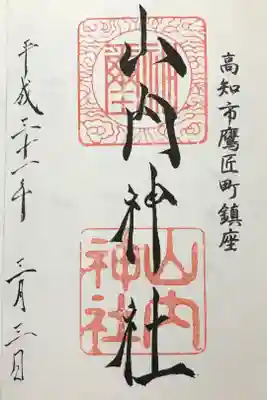 高知市鷹匠町鎮座
山内神社
山内
神社
平成三十一年 三月三日